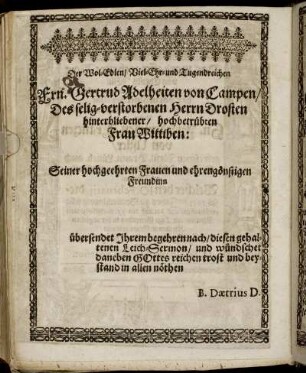 Der Wol-Edlen/ Viel-Ehr-und Tugendreichen
Frn. Gertrud Adelheiten von Campen/
Des selig-verstorbenen Herrn Drosten
hinterbliebener/ hochbetrübten
Frau Wittiben:
Seiner hochgeehrten Frauen und ehrengönstigen
Freundinn
übersendet Jhrem begehren nach/ diesen gehal-
tenen Leich-Sermon/ und wündschet
daneben GOttes reichen trost und bey-
stand in allen nöthen
B. Dætrius D.